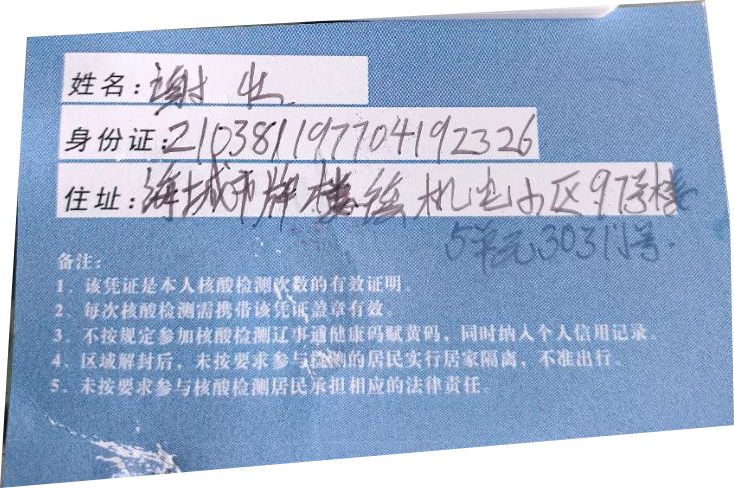 姓名:谢
身份证:210381197704192326
住址:海城市牌楼 机 小区97号楼
5单元303门号.
备注:
1、该凭证是本人核酸检测次数的有效证明。
2、每次核酸检测需携带该凭证盖章有效。
3、不按规定参加核酸检测辽事通健康码赋黄码，同时纳入个人信用记录。
4、区域解封后，未按要求参与检测的居民实行居家隔离，不准出行。
5、未按要求参与核酸检测居民承担相应的法律责任。